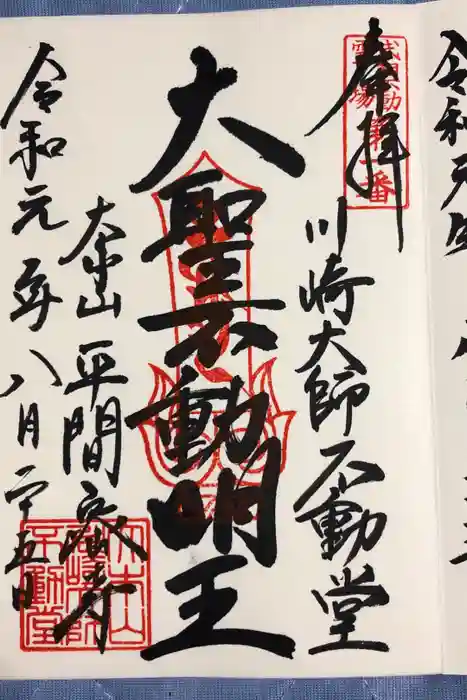 奉拝
武相不動
霊場第一番
川崎大師不動堂
大聖不動明王
大本山 平間寺
令和元年八月二十五日
大本山
川崎大師
不動堂